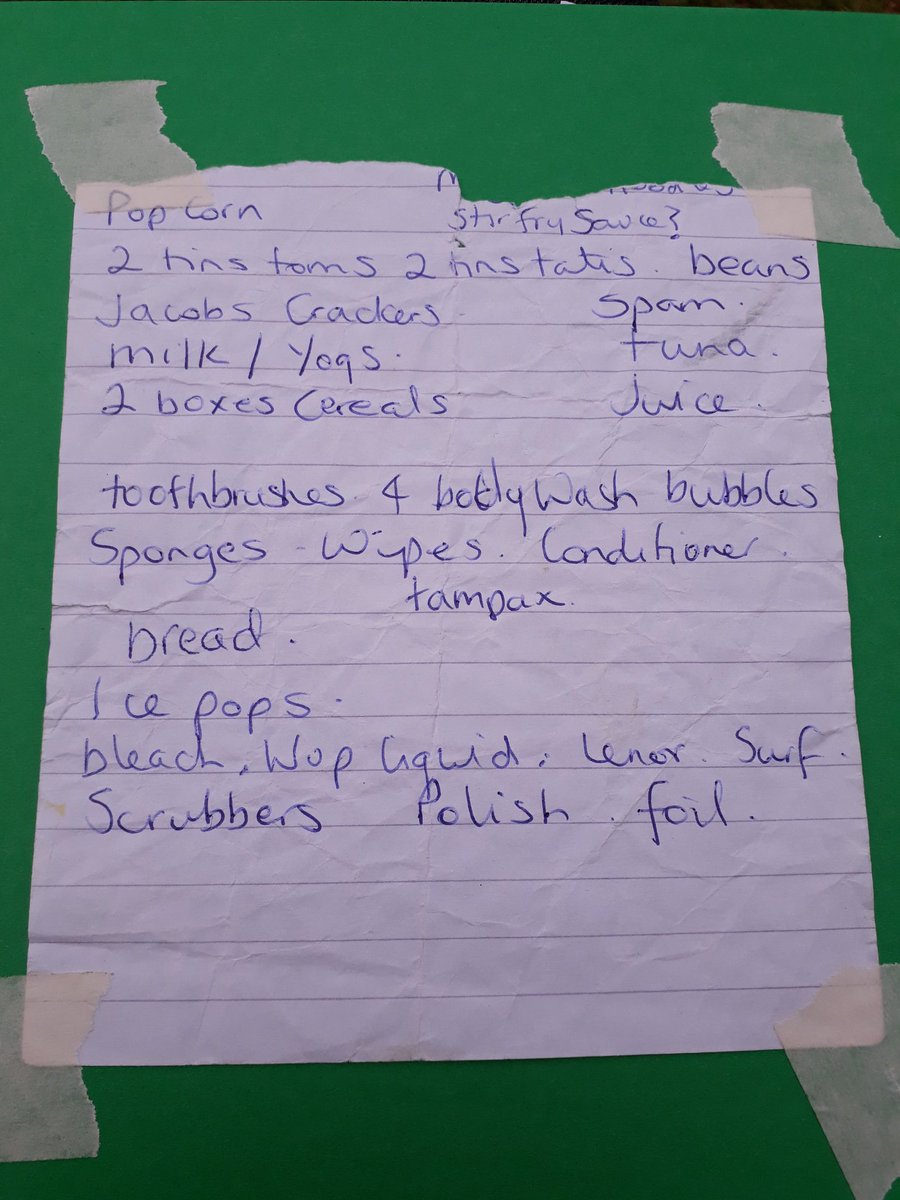 Pop Corn Stir fry Sauce?
2 tins toms 2 tins tatis. beans
Jacobs Crackers. Spam.
milk / Yogs. tuna.
2 boxes Cereals Juice.
toothbrushes. 4 body Wash bubbles
Sponges - Wipes. Conditioner.
tampax.
bread.
Ice pops.
bleach. Wup liquid. Lenor. Surf.
Scrubbers Polish. foil.